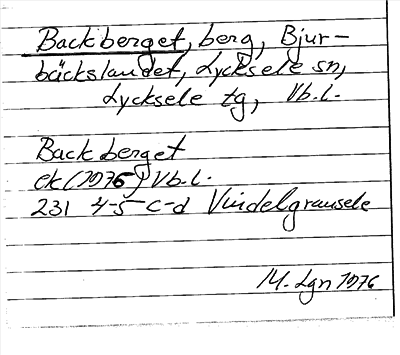 Backberget, berg, Bjur-
bäckslandet, Lycksele sn,
Lycksele tg, Vb.l.
Backberget
ek (1976) Vb.l.
231 4-5 c-d Vindelgransele
M. Lgn 1976